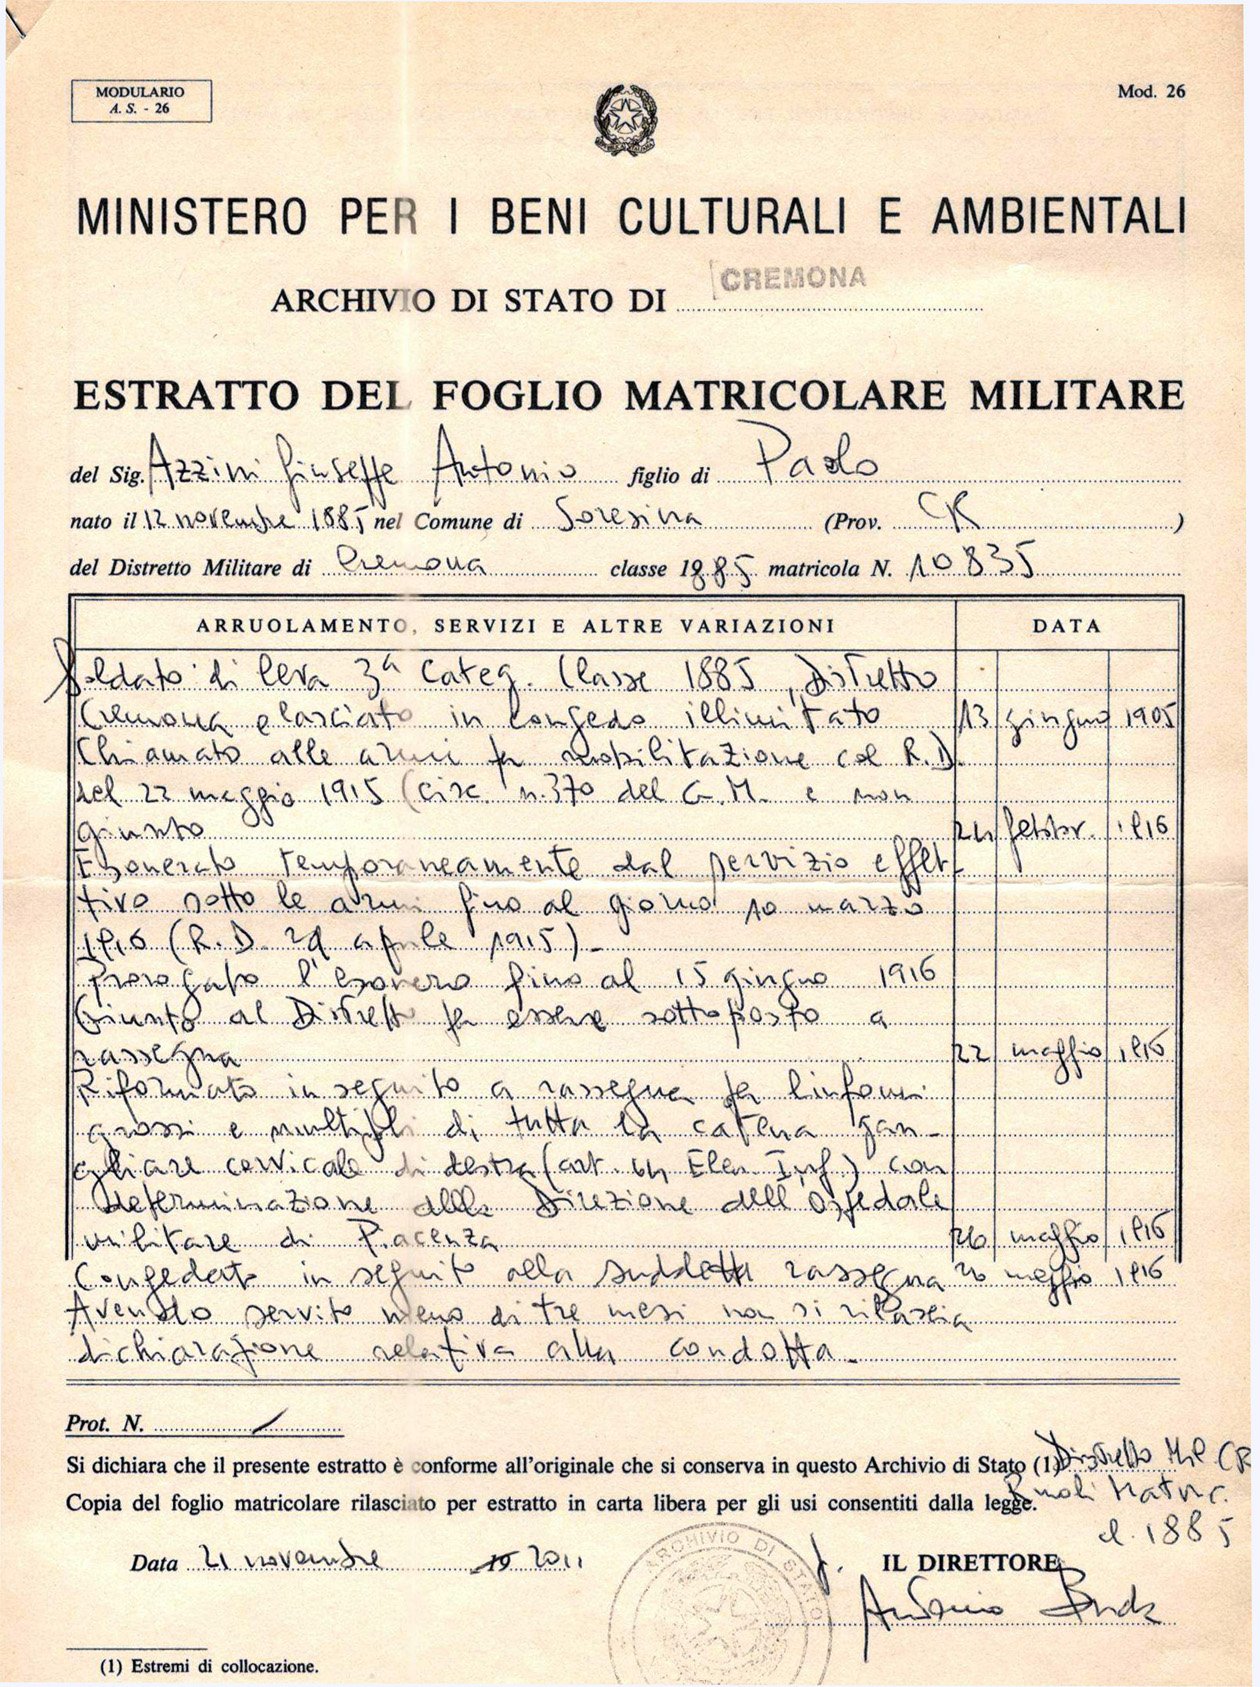 MODULARIO
A. S. - 26
Mod. 26
MINISTERO PER I BENI CULTURALI E AMBIENTALI
ARCHIVIO DI STATO DI CREMONA
ESTRATTO DEL FOGLIO MATRICOLARE MILITARE
del Sig. Azzini Giuseppe Antonio figlio di Paolo
nato il 12 novembre 1885 nel Comune di Soresina (Prov. CR )
del Distretto Militare di Cremona classe 1885 matricola N. 10835
ARRUOLAMENTO, SERVIZI E ALTRE VARIAZIONI DATA
Soldato di leva 3ª Categ. Classe 1885, Distretto
Cremona e lasciato in congedo illimitato 13 giugno 1905
Chiamato alle armi per mobilitazione col R.D.
del 22 maggio 1915 (circ. n. 370 del G.M. e non
giunto 24 febbr. 1916
Esonerato temporaneamente dal servizio effet-
tivo sotto le armi fino al giorno 10 marzo
1916 (R.D. 29 aprile 1915).-
Prorogato l'esonero fino al 15 giugno 1916
Giunto al Distretto per essere sottoposto a
rassegna 22 maggio 1916
Riformato in seguito a rassegna per linfomi
grossi e multipli di tutta la catena gan-
gliare cervicale di destra (art. 64 Elen. Inf.) con
determinazione della Direzione dell'Ospedale
militare di Piacenza 26 maggio 1916
Congedato in seguito alla suddetta rassegna 26 maggio 1916
Avendo servito meno di tre mesi non si rilascia
dichiarazione relativa alla condotta.
Prot. N. /
Si dichiara che il presente estratto è conforme all'originale che si conserva in questo Archivio di Stato (1) Distretto Mil CR
Copia del foglio matricolare rilasciato per estratto in carta libera per gli usi consentiti dalla legge. Ruoli Matric.
cl. 1885
Data 21 novembre 19 2011 IL DIRETTORE
ARCHIVIO DI STATO
Antonio
(1) Estremi di collocazione.